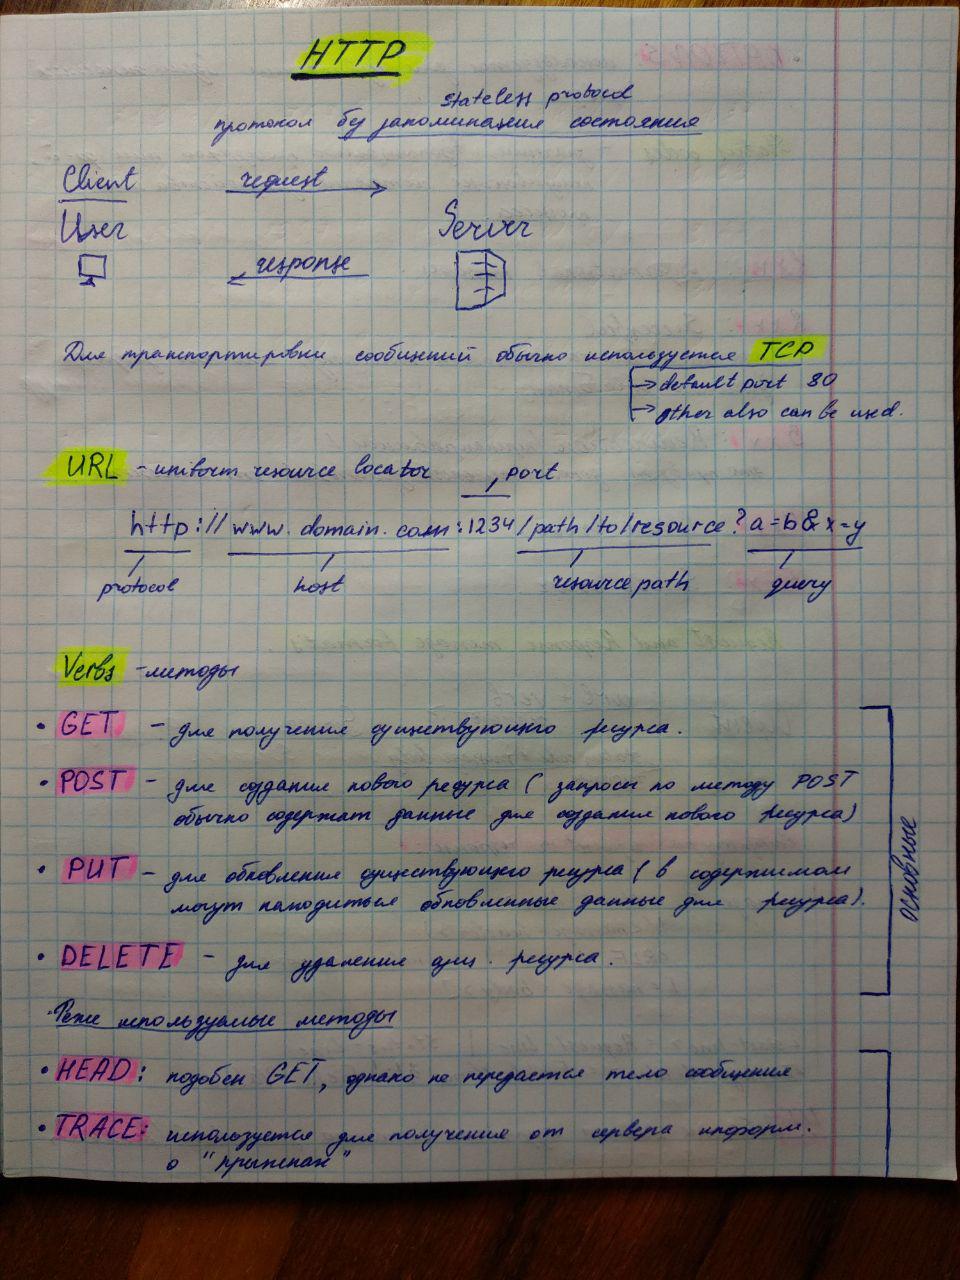 HTTP
stateless protocol
протокол без запоминания состояния
Client request
User Server
response
Для транспортировки сообщений обычно используется TCP
→ default port 80
→ other also can be used.
URL - uniform resource locator port
http://www.domain.com:1234/path/to/resource?a=b&x=y
protocol host resource path query
Verbs - методы
• GET - для получения существующего ресурса.
• POST - для создания нового ресурса (запросы по методу POST
обычно содержат данные для создания нового ресурса)
• PUT - для обновления существующего ресурса (в содержимом
могут находиться обновленные данные для ресурса).
основные
• DELETE - для удаления сущ. ресурса.
Реже используемые методы
• HEAD: подобен GET, однако не передается тело сообщения
• TRACE: используется для получения от сервера информ.
о "прыжках"